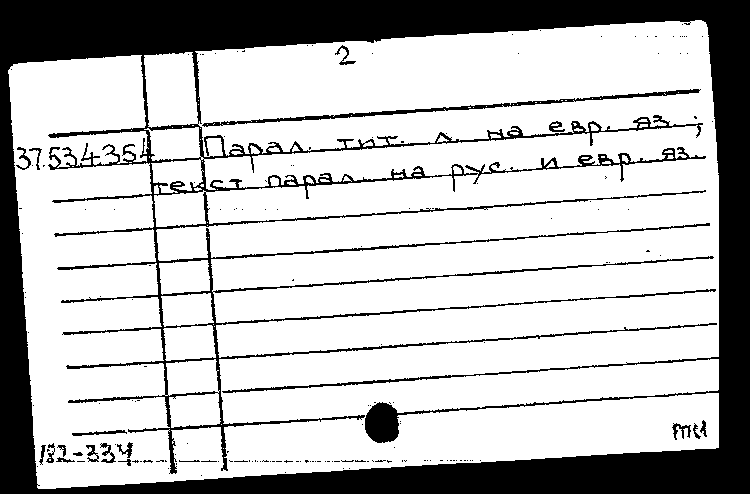 2
37.534-354 Парал. тит. л. на евр. яз.;
текст парал. на рус. и евр. яз.
182-334